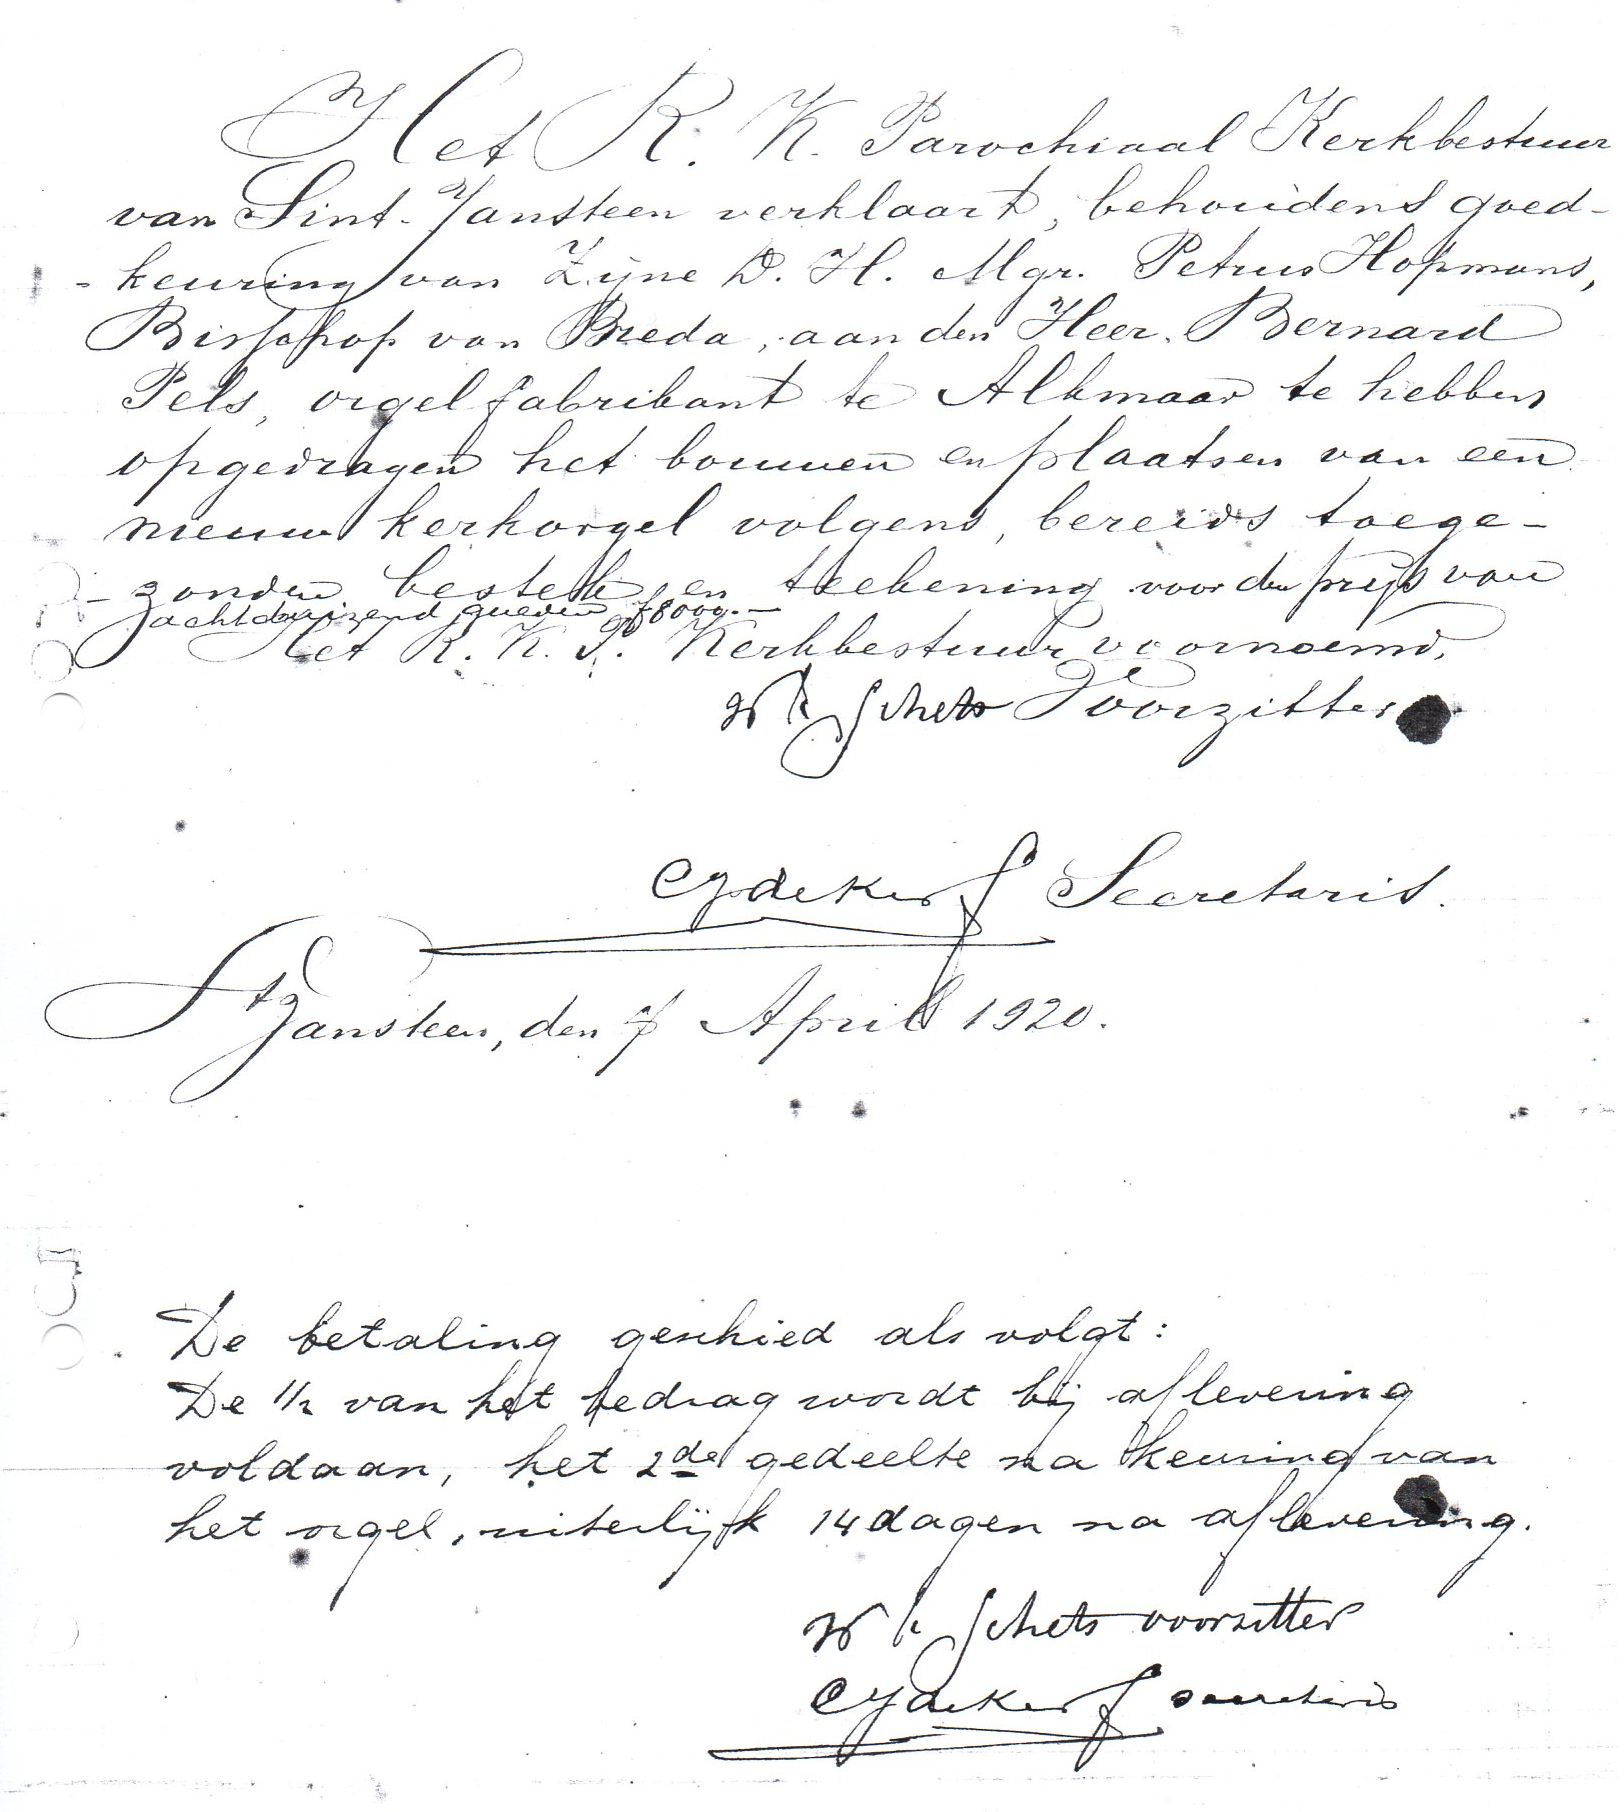 Het R. K. Parochiaal Kerkbestuur
van Sint-Jansteen verklaart, behoudens goed-
- keuring van Zijne D. H. Mgr. Petrus Hopmans,
Bisschop van Breda, aan den Heer. Bernard
Pels, orgelfabrikant te Alkmaar te hebben
opgedragen het bouwen en plaatsen van een
nieuw kerkorgel volgens, bereids toege-
- zonden bestek en teekening voor den prijs van
achtduizend gulden f 8000.-
Het R. K. P. Kerkbestuur voornoemd,
Schets Voorzitter
de Kerf Secretaris.
St Jansteen, den 7 April 1920.
De betaling geschied als volgt:
De 1/2 van het bedrag wordt bij aflevering
voldaan, het 2de gedeelte na keuring van
het orgel, uiterlijk 14 dagen na aflevering.
Schets voorzitter
de Kerf secretaris